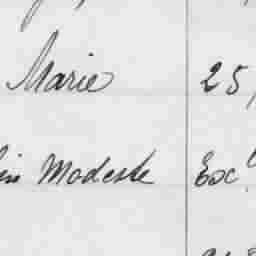 Marie 25
Modeste Exc